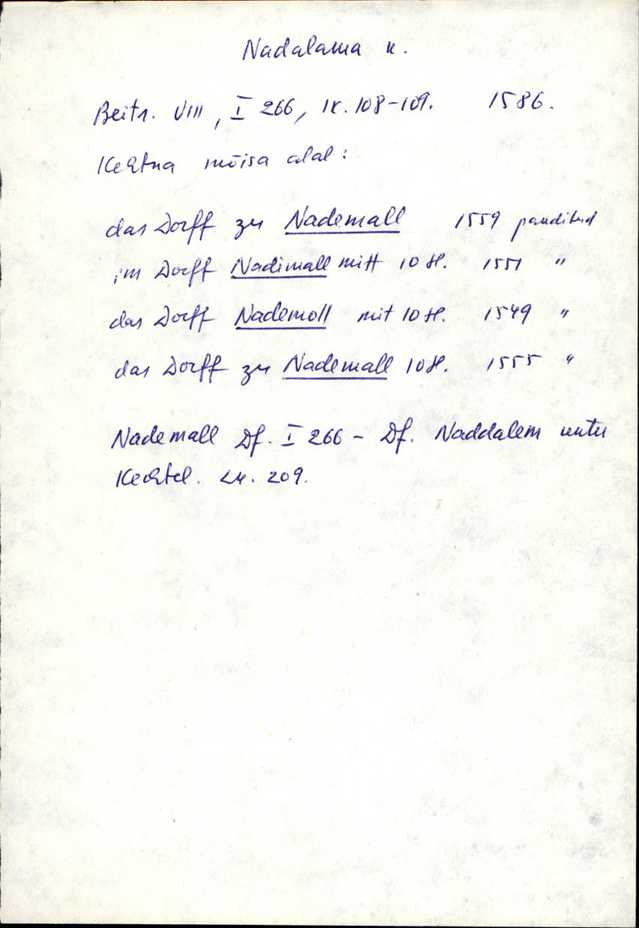 Nadalama k.
Beitr. VIII, I 266, IX. 108-109. 1586.
Kehtna mõisa alal:
das Dorff zu Nademall 1559 panditud
im Dorff Nadimall mitt 10 H. 1551 "
das Dorff Nademoll mit 10 H. 1549 "
das Dorff zu Nademall 10 H. 1555 "
Nademall Df. I 266 - Df. Naddalem unter
Kechtel. LM. 209.